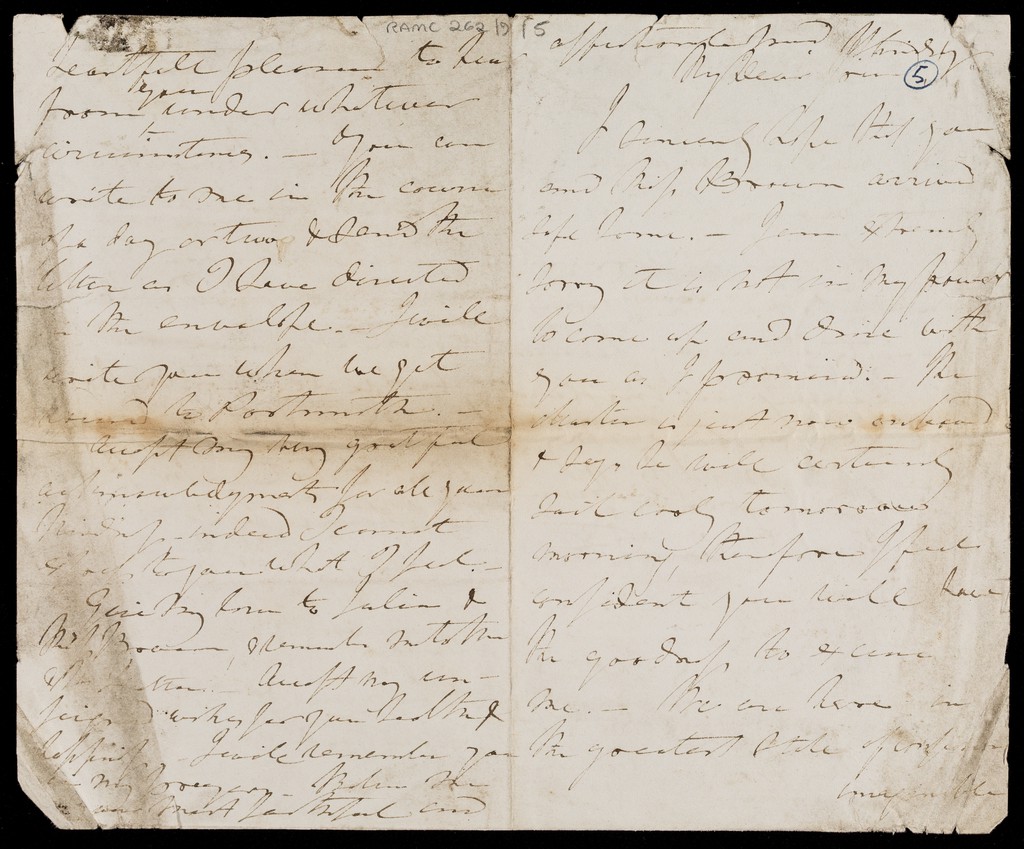 RAMC 262/9/5
5
My dear
I sincerely hope that you
and Miss Brown arrived
safe home. - I am extremely
sorry it is not in my power
to come up and dine with
you as I promised. - The
Master is just now onboard
& says he will certainly
sail early tomorrow
morning, therefore I feel
confident you will have
the goodness to excuse
me. - We are here in
the greatest state of confusion
imaginable
heartfelt pleasure to hear
from you under whatever
circumstances. - You can
write to me in the course
of a day or two & send the
letter as I have directed
the envelope. - I will
write you when we get
round to Portsmouth. -
Accept my very grateful
acknowledgments for all your
kindness, indeed I cannot
express to you what I feel. -
Give my love to Julia &
Miss Brown, remember me to the
Accept my un-
feigned wishes for your health &
happiness - I will remember you
in my prayers - Believe me
your most faithful and
affectionate friend